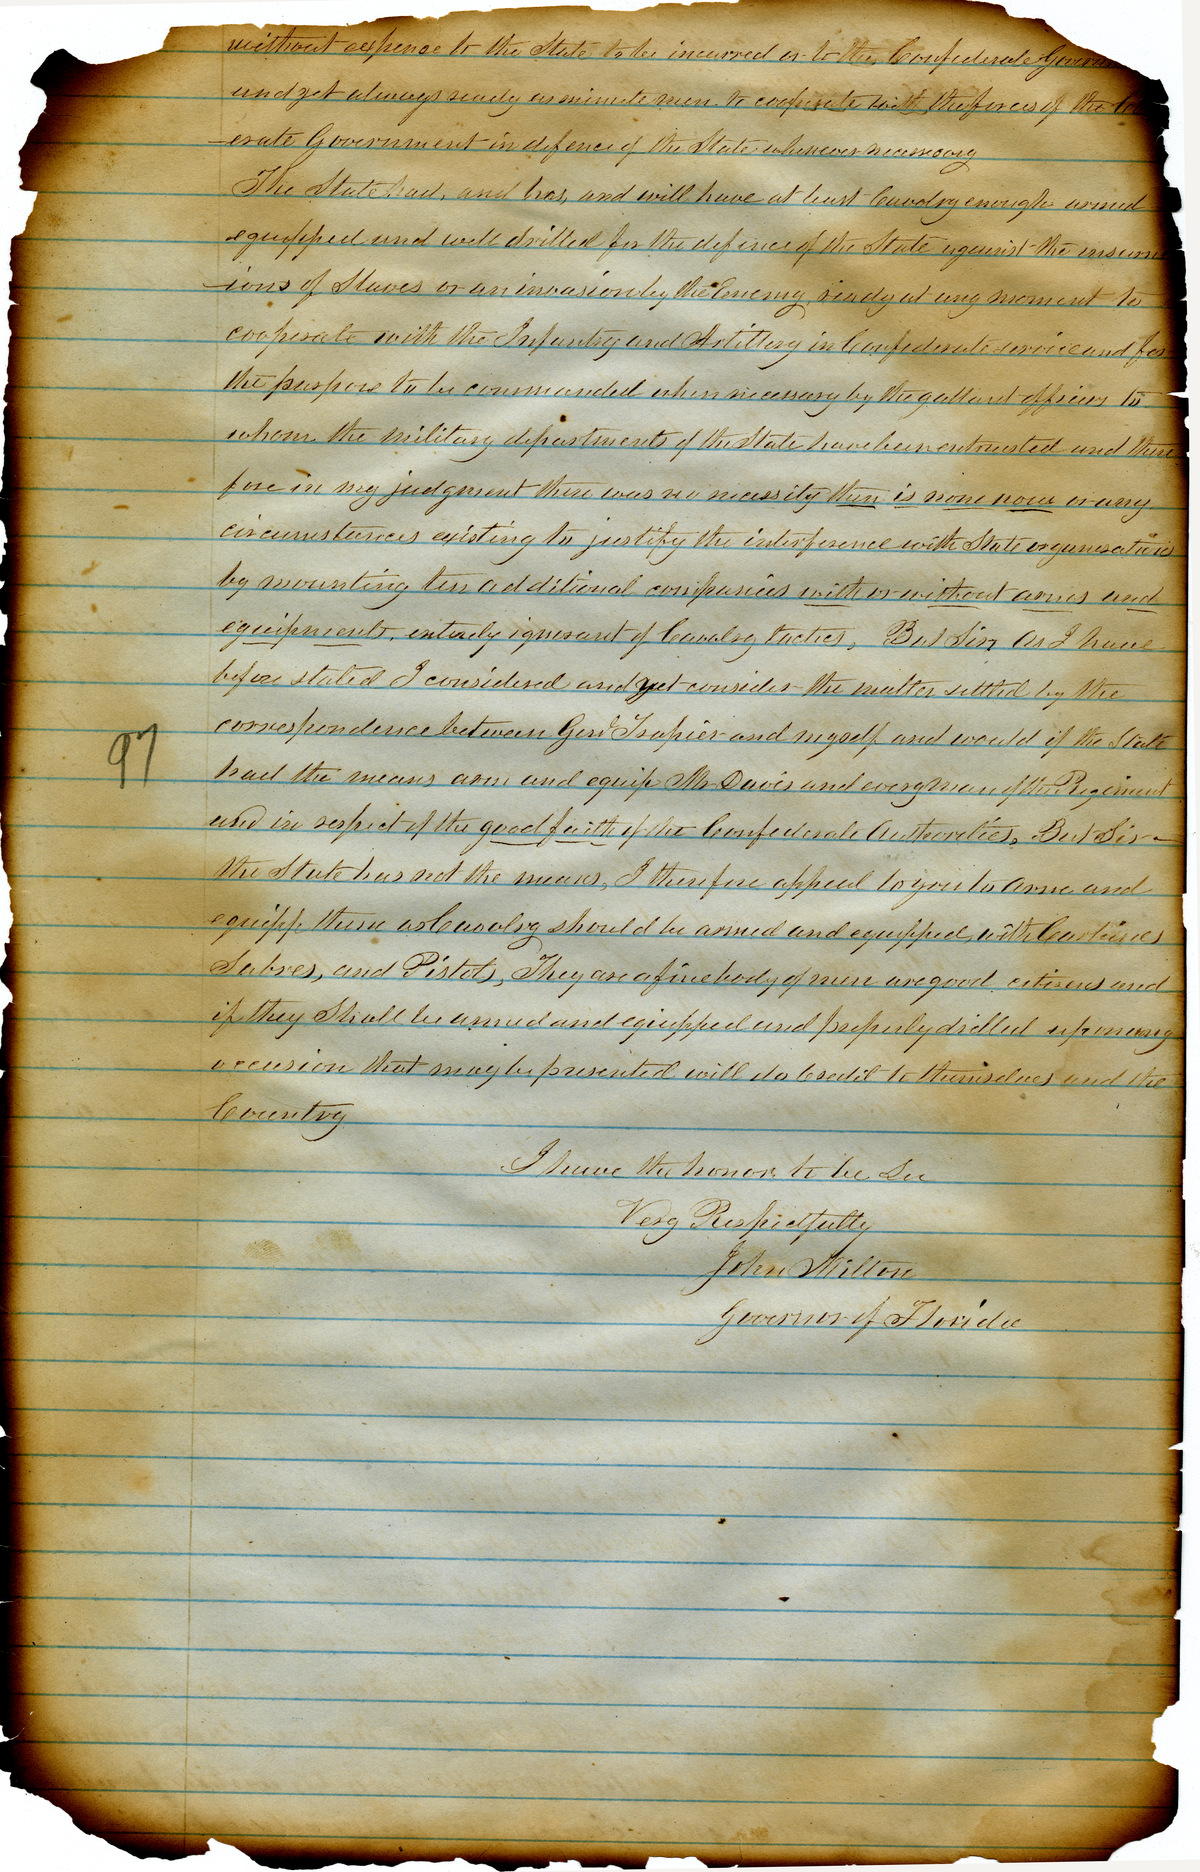 without expense to the State to be incurred or to the Confederate Govern
and yet always ready as minute men to cooperate with the forces of the
erate Government in defence of the State whenever necessary
The State had, and has, and will have at least Cavalry enough armed
equipped and well drilled for the defence of the State against the insurrec
-ions of Slaves or an invasion by the Enemy, ready at any moment to
cooperate with the Infantry and Artillery in Confederate service and for
the purpose to be commanded when necessary by the gallant officers to
whom the military departments of the State have been entrusted and there
fore in my judgment there was no necessity then is none now or any
circumstances existing to justify the interference with State organisations
by mounting ten additional companies with or without arms and
equipments, entirely ignorant of Cavalry tactics, But Sir, As I have
before stated I considered and yet consider the matter settled by the
correspondence between Genl Trapier and myself and would if the State
had the means arm and equip Mr Davis and every man of the Regiment
and in respect of the good faith of the Confederate Authorities. But Sir
the State has not the means, I therefore appeal to you to arm and
equipp them as Cavalry should be armed and equipped, with Carbines
Sabres, and Pistols, They are a fine body of men are good citizens and
if they Shall be armed and equipped and properly drilled upon any
occasion that may be presented will do Credit to themselves and the
Country
I have the honor to be &c
Very Respectfully
John Milton
Governor of Florida
97